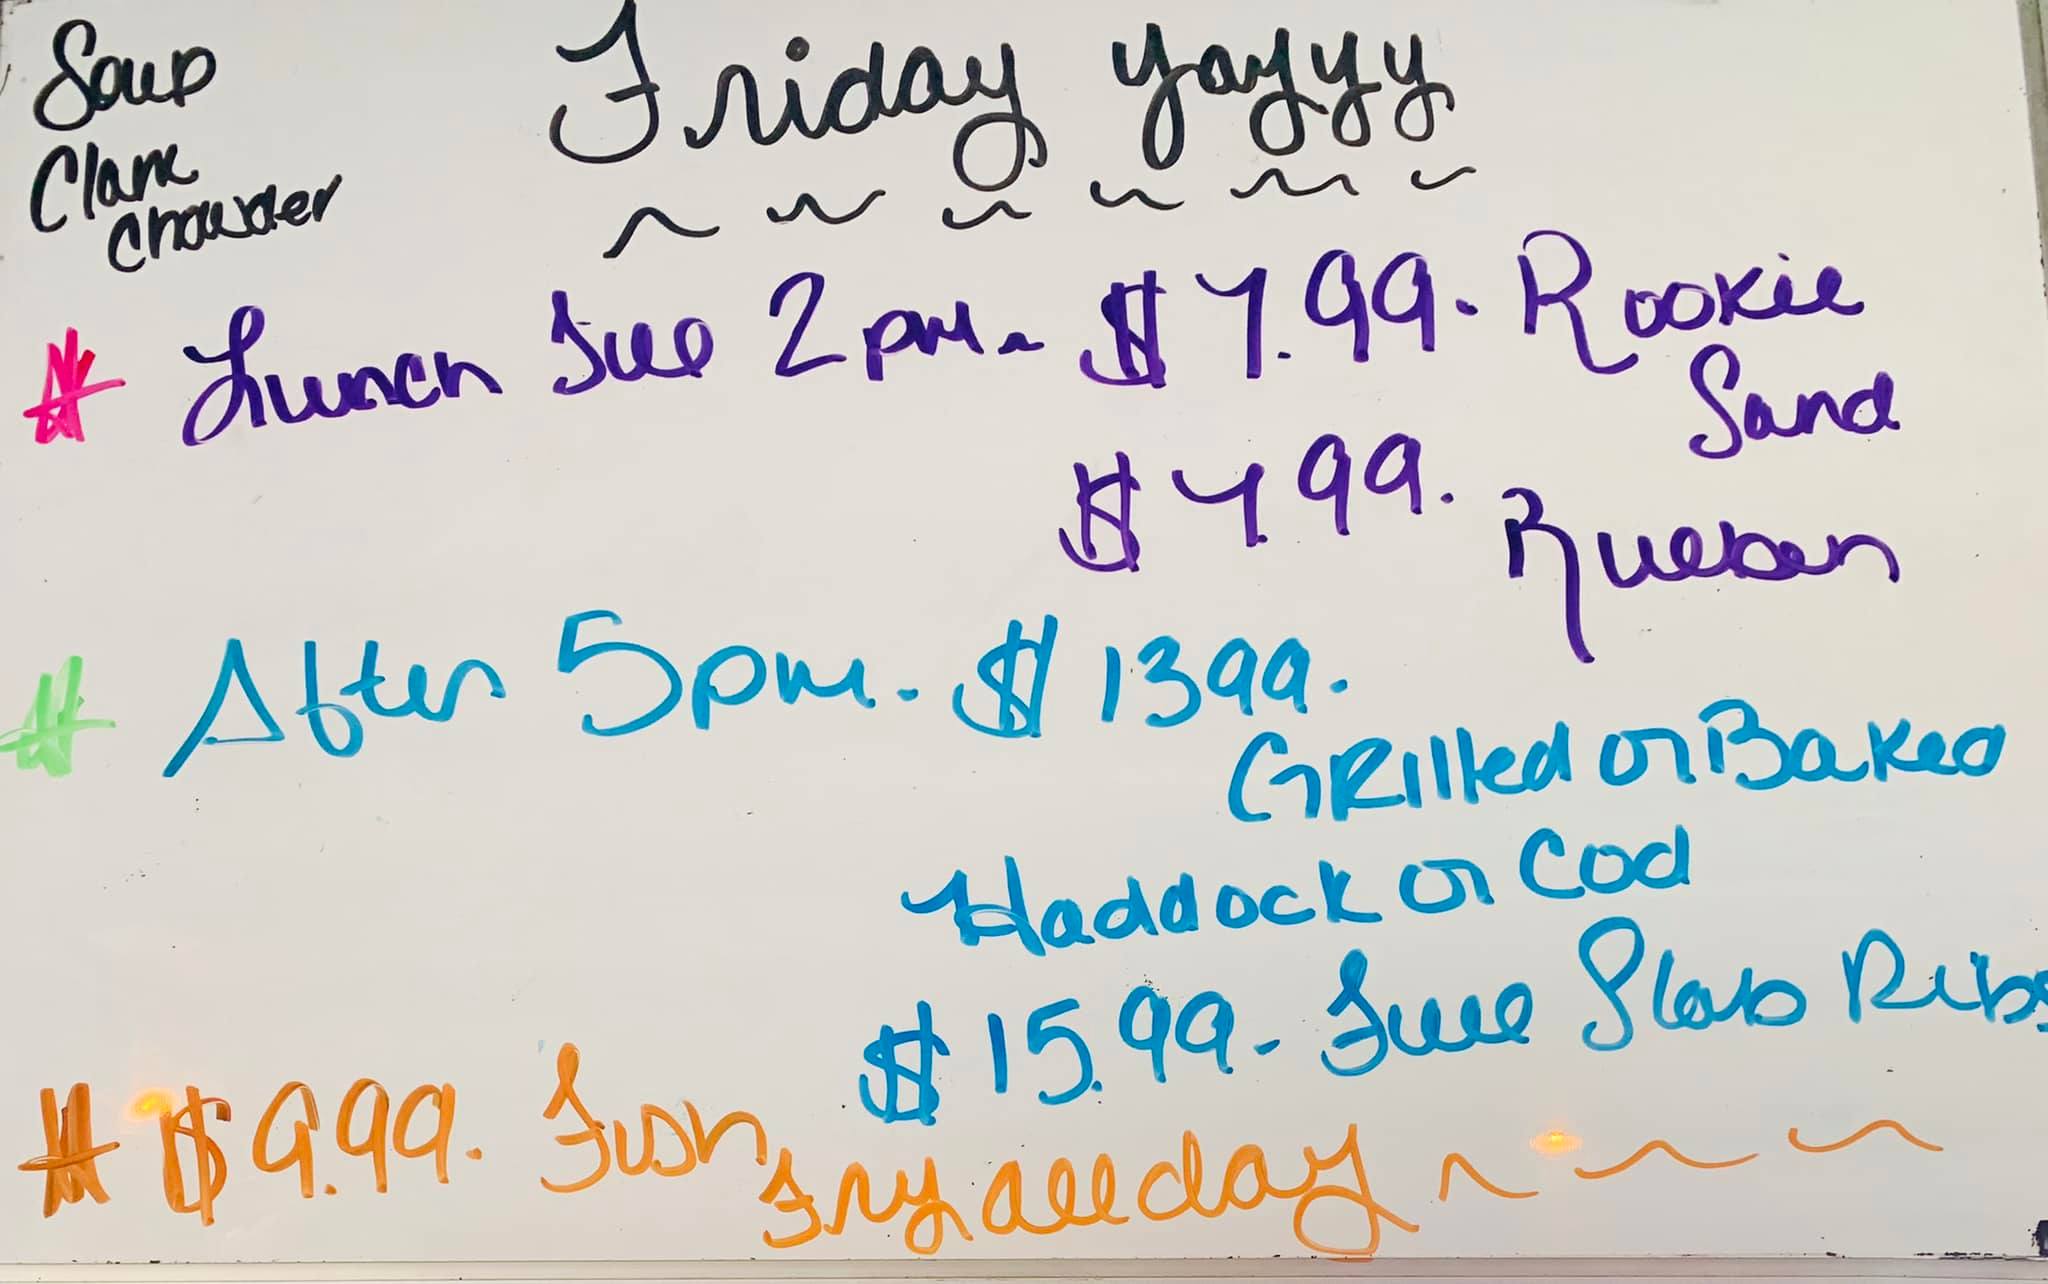 Soup
Clam
Chowder
Friday yayyy
Lunch Till 2pm. $7.99. Rookie
Sand
$7.99. Rueben
After 5pm. $1399.
Grilled or Baked
Haddock or Cod
$15.99. Full Slab Ribs
$9.99. Fish
Fry all day